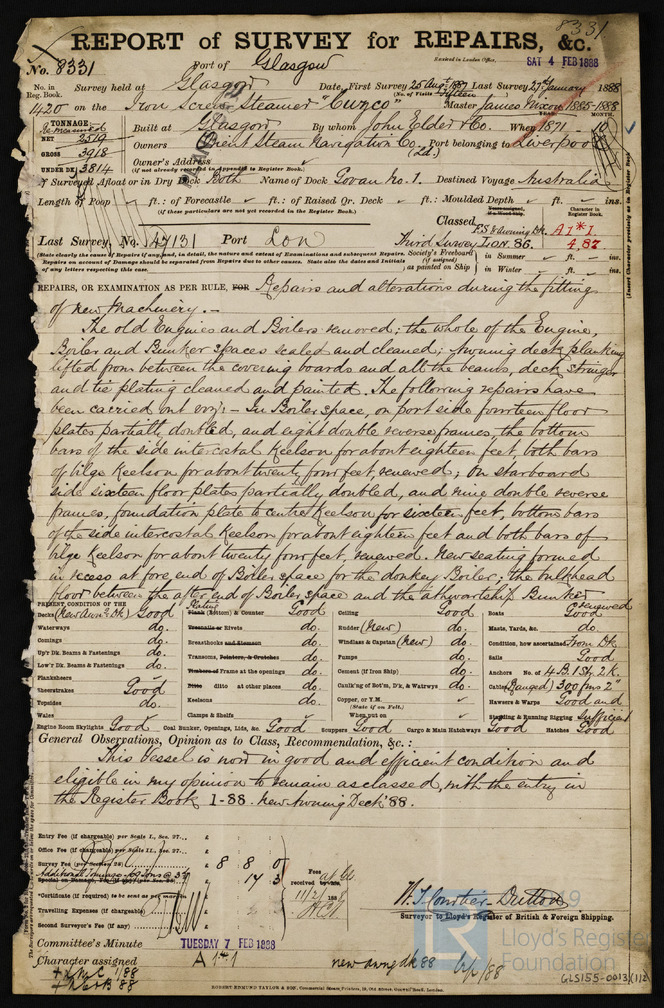 8331
REPORT of SURVEY for REPAIRS, &c.
No. 8331 Port of Glasgow
Received in London Office, SAT 4 FEB 1888
No. in Reg. Book. Survey held at Glasgow Date, First Survey 25 Augt 1887 Last Survey 27th January 1888
(No. of Visits Fifteen)
1420 on the Iron Screw Steamer "Cuzco" Master James Nixon 1885-1888
TONNAGE: Built at Glasgow By whom John Elder & Co. When 1871
YEAR. MONTH. 10
Re-measured
NET
GROSS 3918
UNDER DK 3814
Owners Orient Steam Navigation Co. (Ld.) Port belonging to Liverpool
Owner's Address
(if not already recorded in Appendix to Register Book.)
If Surveyed Afloat or in Dry Dock Both Name of Dock Govan No. 1. Destined Voyage Australia
Length of Poop ft. : of Forecastle ft. : of Raised Qr. Deck ft. : Moulded Depth ft. ins.
(if these particulars are not yet recorded in the Register Book.)
Character in Register Book.
Classed F.S & Awning Dk. A1*1
Last Survey, No. 47131 Port Lon Third Survey Lon. 86. 4,87
(State clearly the cause of Repairs if any, and, in detail, the nature and extent of Examinations and subsequent Repairs.
Repairs on account of Damage should be separated from Repairs due to other causes. State also the dates and Initials
of any letters respecting this case.
Society's Freeboard (if assigned) as painted on Ship in Summer ft. ins.
in Winter ft. ins.
REPAIRS, OR EXAMINATION AS PER RULE, FOR Repairs and alterations during the fitting
of new Machinery.-
The old Engines and Boilers removed; the whole of the Engine,
Boiler and Bunker spaces scaled and cleaned; Awning deck planking
lifted from between the covering boards and all the beams, deck stringer
and tie plating cleaned and painted. The following repairs have
been carried out viz:- In Boiler space, on port side fourteen floor
plates partially doubled, and eight double reverse frames, the bottom
bars of the side intercostal Keelson for about eighteen feet, both bars
of bilge Keelson for about twenty four feet, renewed; On starboard
side sixteen floor plates partially doubled, and nine double reverse
frames, foundation plate to centre Keelson for sixteen feet, bottom bars
of the side intercostal Keelson for about eighteen feet and both bars of
bilge Keelson for about twenty four feet, renewed. New seating formed
in recess at fore end of Boiler space for the donkey Boiler; the bulkhead
floor between the after end of Boiler space and the athwartship Bunker
renewed
PRESENT CONDITION OF THE
Decks (New Awn'g Dk) Good
Waterways do.
Comings do.
Up'r Dk. Beams & Fastenings do.
Low'r Dk. Beams & Fastenings do.
Planksheers
Sheerstrakes Good
Topsides do.
Wales
Engine Room Skylights Good
Plating
Plank (Bottom) & Counter Good
Treenails or Rivets do.
Breasthooks and Stemson do.
Transoms, Pointers, & Crutches do.
Timbers of Frame at the openings do.
Ditto ditto at other places do.
Keelsons do.
Clamps & Shelfs
Coal Bunker, Openings, Lids, &c. Good
Ceiling Good
Rudder (New) do.
Windlass & Capstan (New) do.
Pumps do.
Cement (if Iron Ship) do.
Caulk'ng of Bot'm, D'k, & Watrwys do.
Copper, or Y.M.
(State if on Felt.)
When put on
Scuppers Good Cargo & Main Hatchways Good
Boats Good
Masts, Yards, &c. do.
Condition, how ascertained From Dk
Sails Good
Anchors No. of 4 B. 1 St, 2 K.
Cables (Ranged) 300 fms 2"
Hawsers & Warps Good and
Standing & Running Rigging Sufficient
Hatches Good
General Observations, Opinion as to Class, Recommendation, &c. :
This vessel is now in good and efficient condition and
eligible in my opinion to remain as classed, with the entry in
the Register Book 1-88. New Awning Deck '88.
Entry Fee (if chargeable) per Scale I., Sec. 27... £
Office Fee (if chargeable) per Scale II., Sec. 27... £
Survey Fee (per Section 28) £ 8 8 0
£ 14 3
*Certificate (if required) to be sent as per margin
Travelling Expenses (if chargeable) £
Second Surveyor's Fee (if any) £
Fees received
W. J. Courtier-Dutton
Surveyor to Lloyd's Register of British & Foreign Shipping.
Committee's Minute TUESDAY 7 FEB 1888
Character assigned A 1*1 new awng dk 88
+ L.M.C. 1/88
+ N.E&B '88
Lloyd's Register
Foundation
GLS155-0013(1/2)
ROBERT EDMUND TAYLOR & SON, Commercial Steam Printers, 19, Old Street, Goswell Road, London.